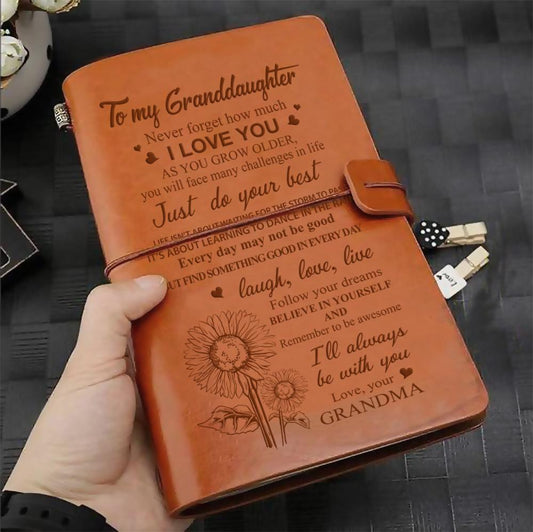 To my Granddaughter
Never forget how much
I LOVE YOU
AS YOU GROW OLDER,
you will face many challenges in life
Just do your best
LIFE ISN'T ABOUT WAITING FOR THE STORM TO PASS
IT'S ABOUT LEARNING TO DANCE IN THE RAIN
Every day may not be good
BUT FIND SOMETHING GOOD IN EVERY DAY
laugh, love, live
Follow your dreams
BELIEVE IN YOURSELF
AND
Remember to be awesome
I'll always
be with you
Love, your
GRANDMA
Love